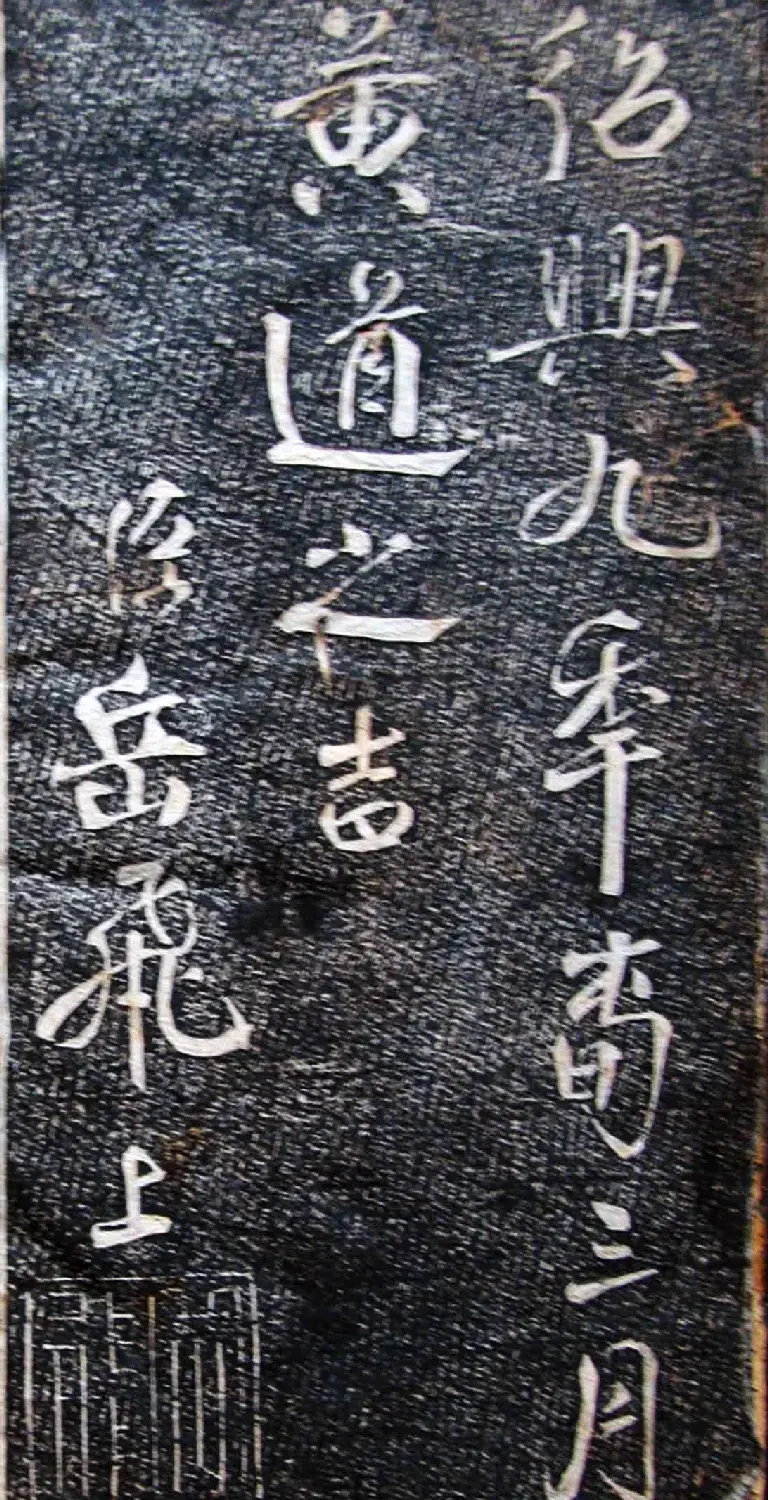 紹興九年三月
黄道之吉
岳飛上